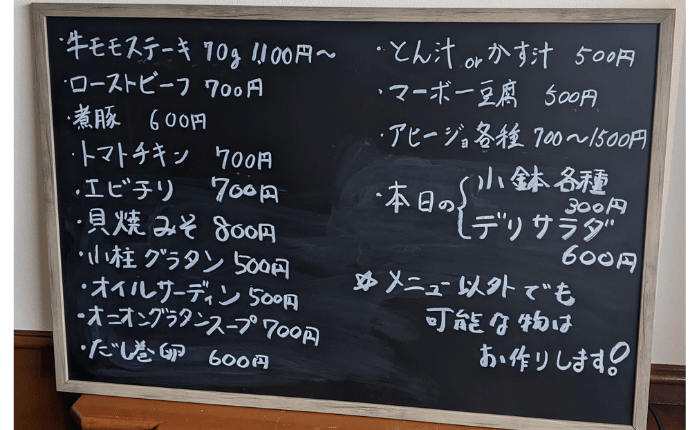 ・牛モモステーキ 70g 1,100円〜
・ローストビーフ 700円
・煮豚 600円
・トマトチキン 700円
・エビチリ 700円
・貝焼みそ 800円
・小柱グラタン 500円
・オイルサーディン 500円
・オニオングラタンスープ 700円
・だし巻卵 600円
・とん汁 or かす汁 500円
・マーボー豆腐 500円
・アヒージョ各種 700〜1500円
・本日の{小鉢各種
300円
デリサラダ
600円
☆メニュー以外でも
可能な物は
お作りします!